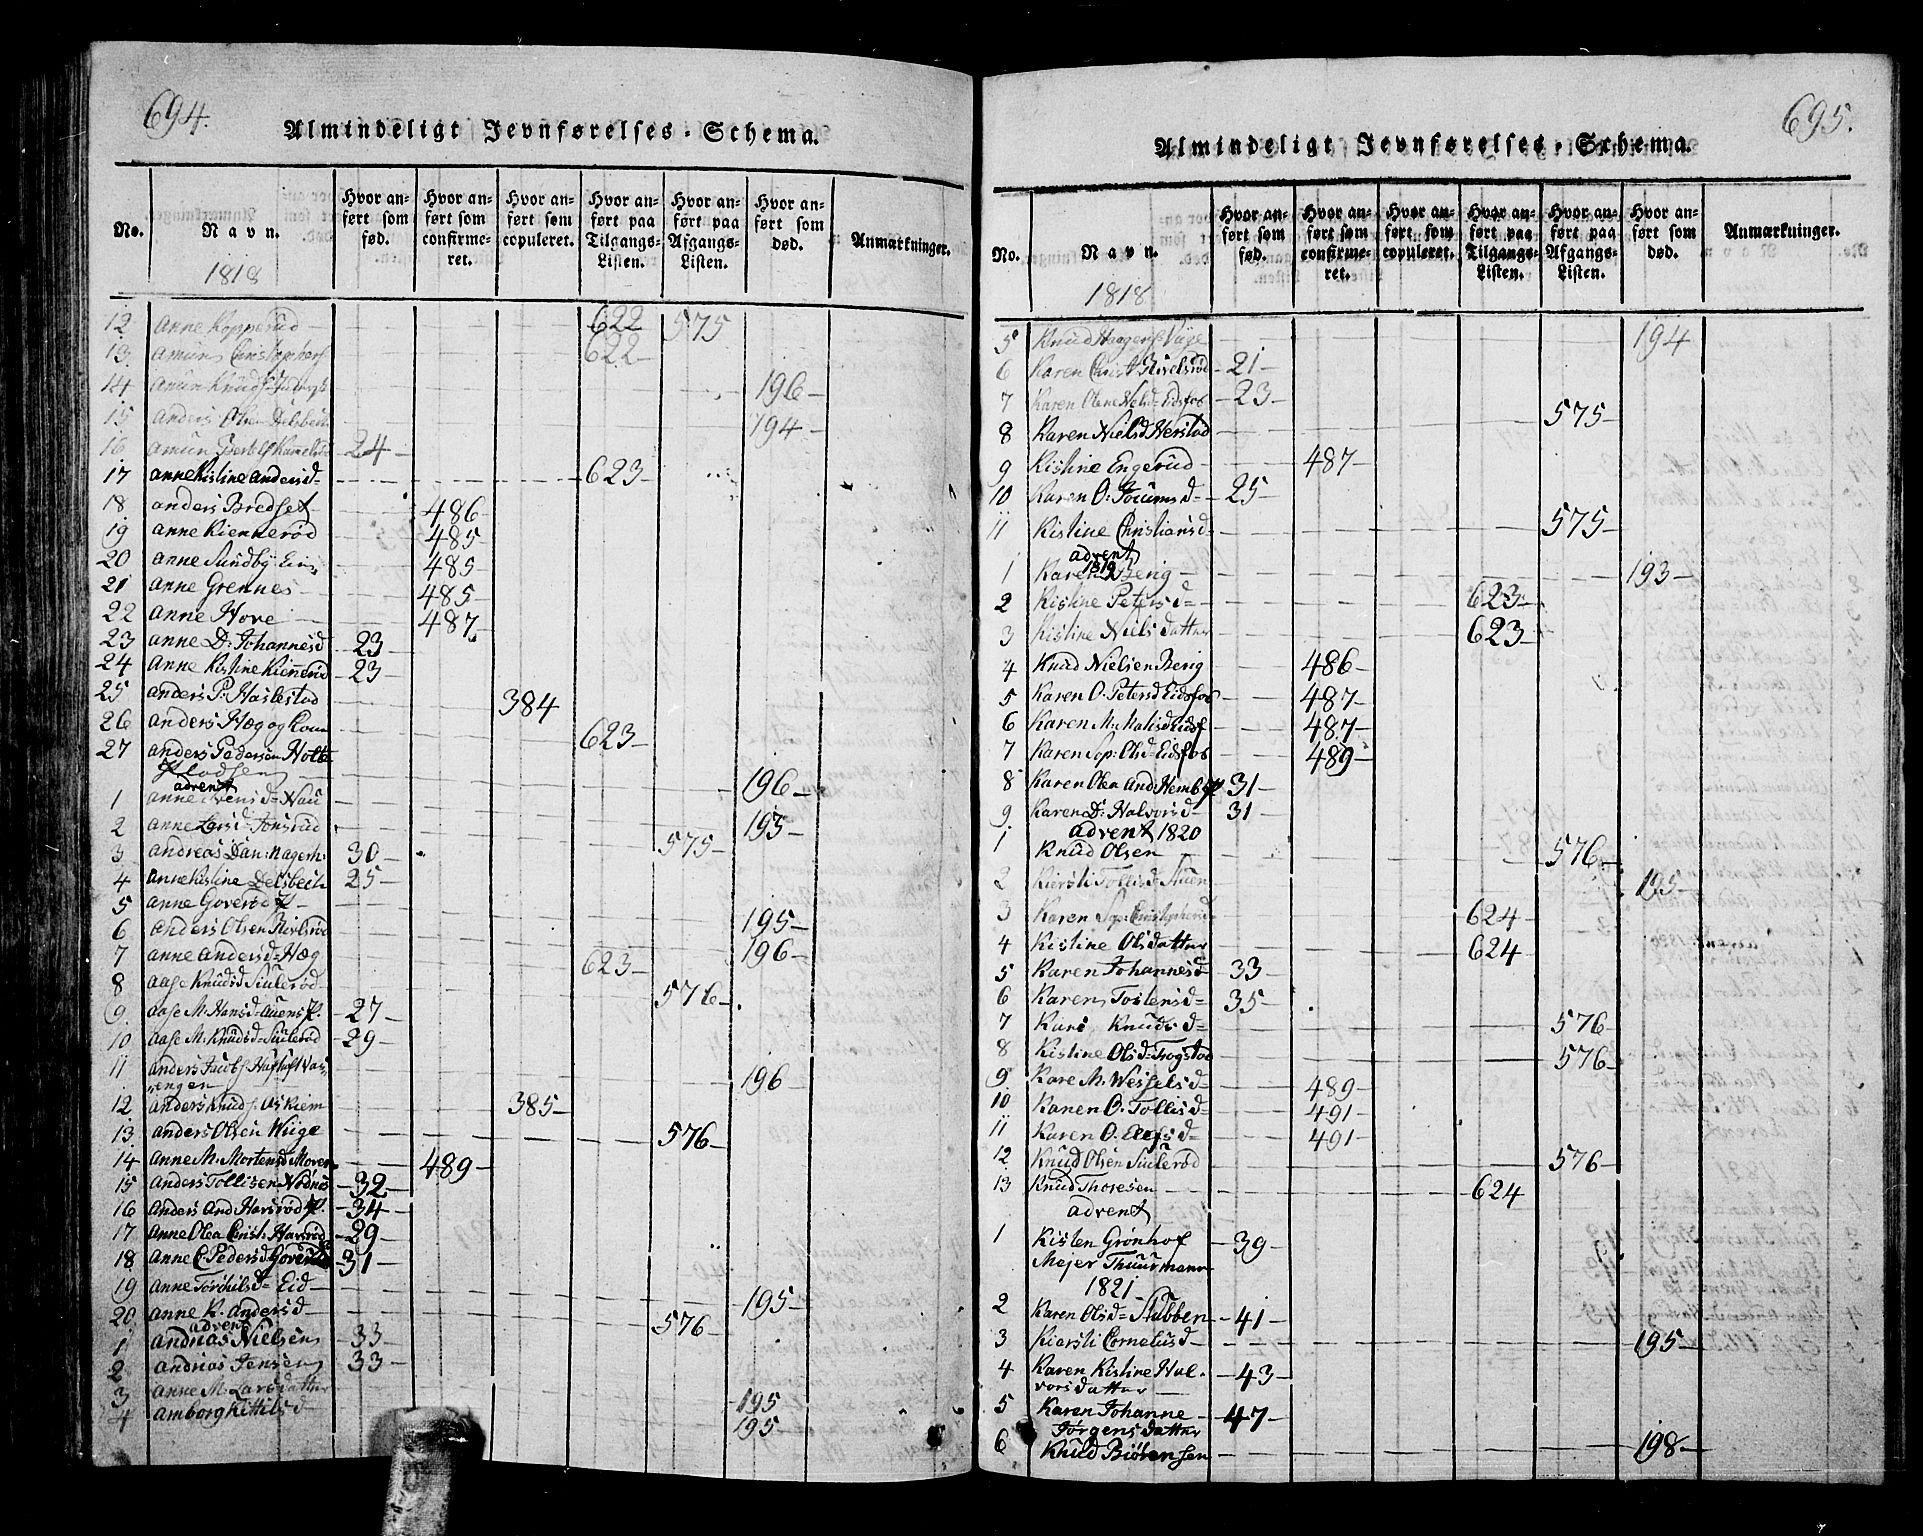 694.
Almindeligt Jevnførelses-Schema.
No.
Navn.
1818
Hvor anført som fød.
Hvor anført som confirmeret.
Hvor anført som copuleret.
Hvor anført paa Tilgangs-Listen.
Hvor anført paa Afgangs-Listen.
Hvor anført som død.
Anmærkninger.
12 Anne Kopperud 622 575
13 Amun Christophers 622
14 Amun Knuds 196
15 Anders Olsen 194
16 Amun 24
17 Anne Kistine Andersd 623
18 Anders Bredset 486
19 Anne Kiennerød 485
20 Anne Sundby 485
21 Anne Grennes 485
22 Anne Hove 487
23 Anne D: Johannesd 23
24 Anne Kistine Kiennerød 23
25 Anders P: Haslestad 384
26 Anders Hæg og Kone 623
27 Anders Pedersen Holte
196
advent
1 Anne Iversd= Hau
2 Anne Larsd= Jonsrud 195
3 Andreas Dan: Hagerh: 30 575
4 Anne Kistine Delsbech 25
5 Anne Goverød
6 Anders Olsen 195
7 Anne Andersd= Hæg 196
8 Aase Knudsd Siulerød 623
576
9 Aase M. Hansd= 27
10 Aase M. Knudsd= Siulerød 29
11 Anders
engen 196
12 Anders Knuds Askiem 385
13 Anders Olsen Wiige 576
14 Anne M. Mortensd 489
15 Anders Tollisen 32
16 Anders And Harsrød 34
17 Anne Olea Crist: Harsrød 29
18 Anne C. Pedersd 31
19 Anne Torchilsd= Eid 195
20 Anne K. Andersd 576
advent
1 Andrias Nielsen 33
2 Andrias Jensen 33
3 Anne M. Larsdatter 195
4 Amborg Kittilsd 195
695.
Almindeligt Jevnførelses-Schema.
No.
Navn.
1818
Hvor anført som fød.
Hvor anført som confirmeret.
Hvor anført som copuleret.
Hvor anført paa Tilgangs-Listen.
Hvor anført paa Afgangs-Listen.
Hvor anført som død.
Anmærkninger.
5 Knud Haagens Viige 194
6 Karen Christ 21
7 Karen Olene Eidsfos 23
8 Karen Nielsd Herstad 575
9 Kistine Engerud 487
10 Karen O: Joramsd= 25
11 Kistine Christiansd= 575
advent
1819
1 Karen Berig 193
2 Kistine Petersd= 623
3 Kistine Nielsdatter 623
4 Knud Nielsen Berig 486
5 Karen O. Petersd Eidsfos 487
6 Karen M. 487
7 Karen Sop: Olsd= Eidsfos 489
8 Karen Olea And 31
9 Karen D: Halvorsd= 31
advent 1820
1 Knud Olsen 576
2 Kiersti Tollisd= Auen 195
3 Karen Sop: Christophersd 624
4 Kistine Olsdatter 624
5 Karen Johannesd 33
6 Karen Tostensd= 35
7 Kari Knudsd= 576
8 Kistine Olsd= Trogstad 576
9 Kare M. Wesselsd= 489
10 Karen O. Tollisd= 491
11 Karen O. Elefsd= 491
12 Knud Olsen Siulerød 576
13 Knud Thoresen 624
advent
1 Kisten Grønhof 39
Mejer Thuurmann
1821
2 Karen Olsd= Stubben 41
3 Kiersti Cornelisd 195
4 Karen Kistine Hal-
vorsdatter 43
5 Karen Johanne 47
Jørgensdatter
6 Knud Biørensen 198